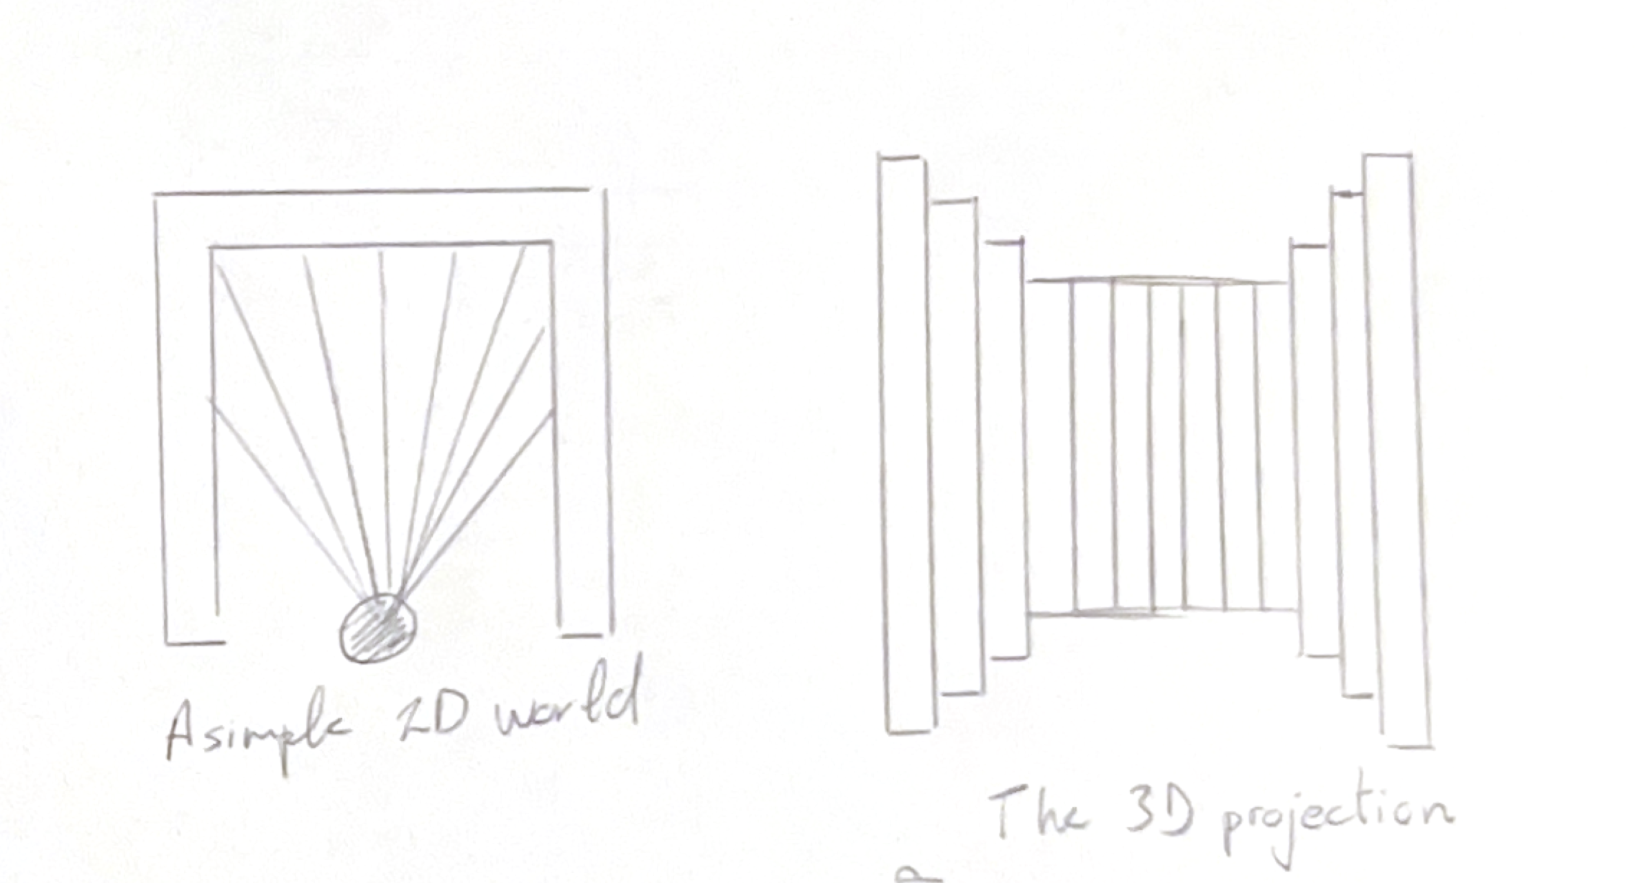 A simple 2D world
The 3D projection